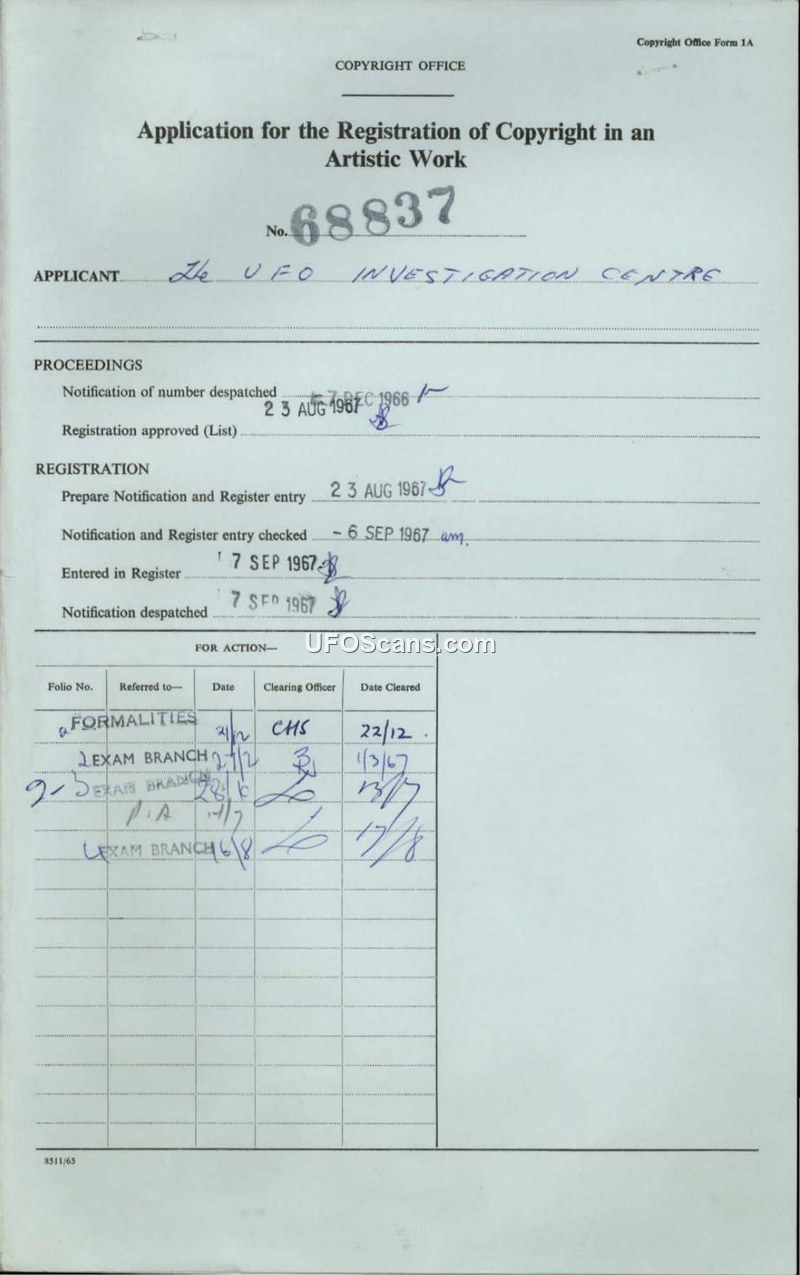 Copyright Office Form 1A
COPYRIGHT OFFICE
Application for the Registration of Copyright in an
Artistic Work
No. 68837
APPLICANT The UFO INVESTIGATION CENTRE
PROCEEDINGS
Notification of number despatched 7 DEC 1966
23 AUG 1967
Registration approved (List)
REGISTRATION
Prepare Notification and Register entry 23 AUG 1967
Notification and Register entry checked -6 SEP 1967 am.
Entered in Register 7 SEP 1967
Notification despatched 7 SEP 1967
UFOScans.com
FOR ACTION—
Folio No. Referred to— Date Clearing Officer Date Cleared
FORMALITIES CHS 22/12
2 EXAM BRANCH 1/3/67
EXAM BRANCH 13/7
EXAM BRANCH 16/8 17/8
8511/65